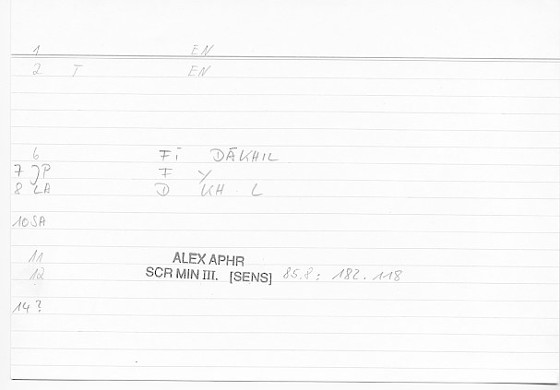 1 EN
2 T EN
6 FĪ DĀKHIL
7 JP F Y
8 LA D KH L
10 SA
11 ALEX APHR
12 SCR MIN III. [SENS] 85.8: 182.118
14 ?